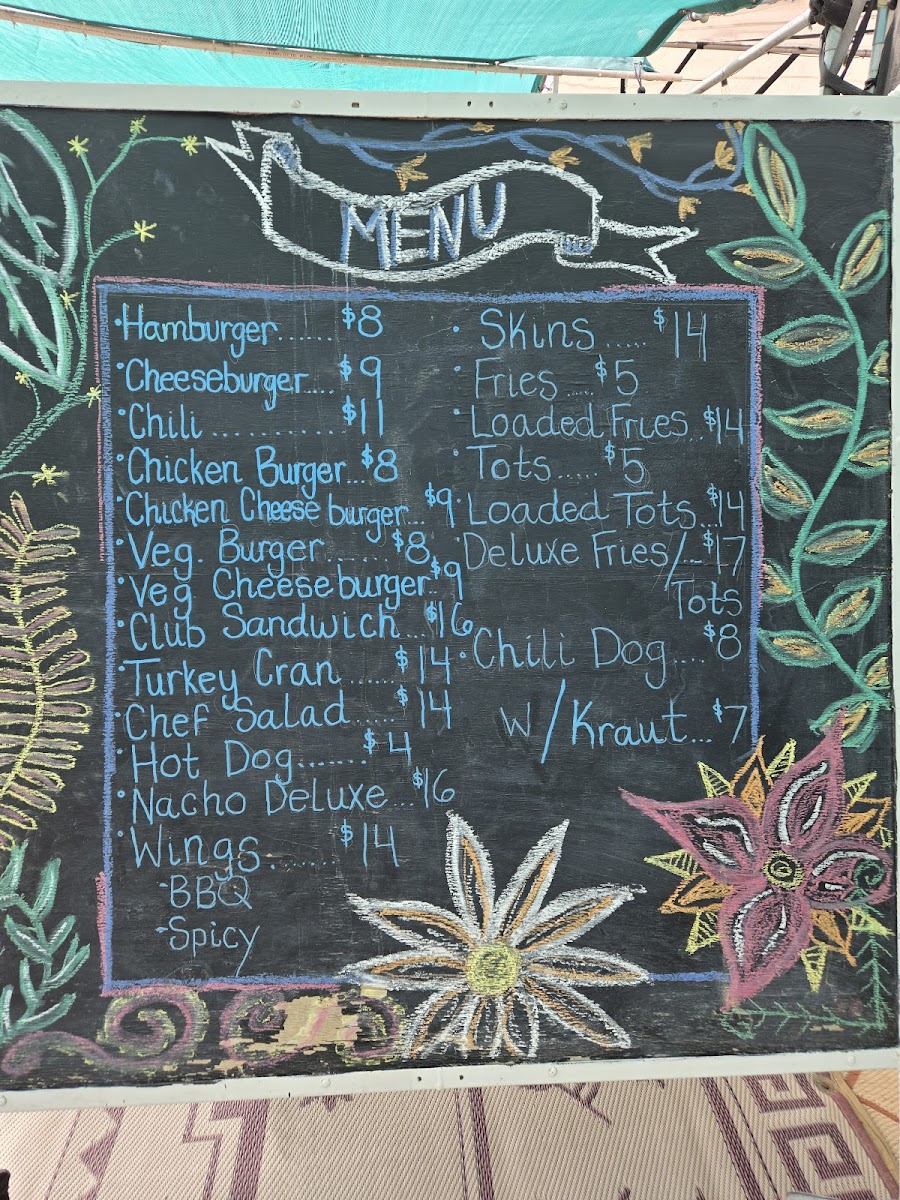 MENU
·Hamburger...... $8
·Cheeseburger.... $9
·Chili ........... $11
·Chicken Burger... $8
·Chicken Cheese burger... $9
·Veg. Burger ....... $8
·Veg Cheeseburger.. $9
·Club Sandwich... $16
·Turkey Cran ...... $14
·Chef Salad..... $14
·Hot Dog....... $4
·Nacho Deluxe... $16
·Wings ....... $14
-BBQ
-Spicy
· Skins ..... $14
· Fries ..... $5
·Loaded Fries.. $14
·Tots..... $5
·Loaded Tots... $14
·Deluxe Fries/... $17
Tots
·Chili Dog.... $8
W/Kraut... $7